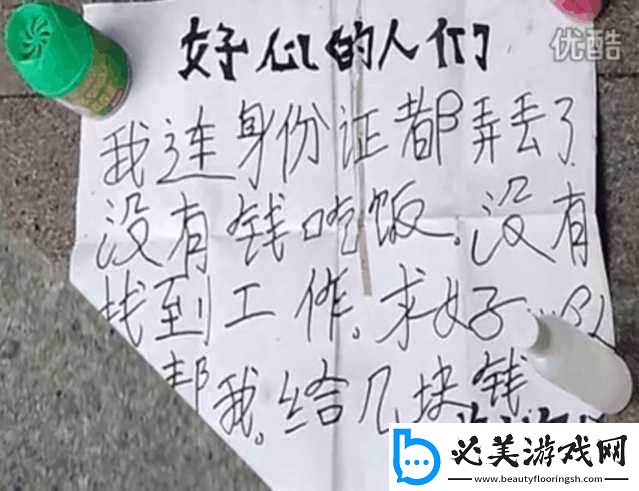 好心的人们
优酷
我连身份证都弄丢了
没有钱吃饭。没有
找到工作。求好
帮我。给几块钱
必美游戏网
www.beautyflooringsh.com